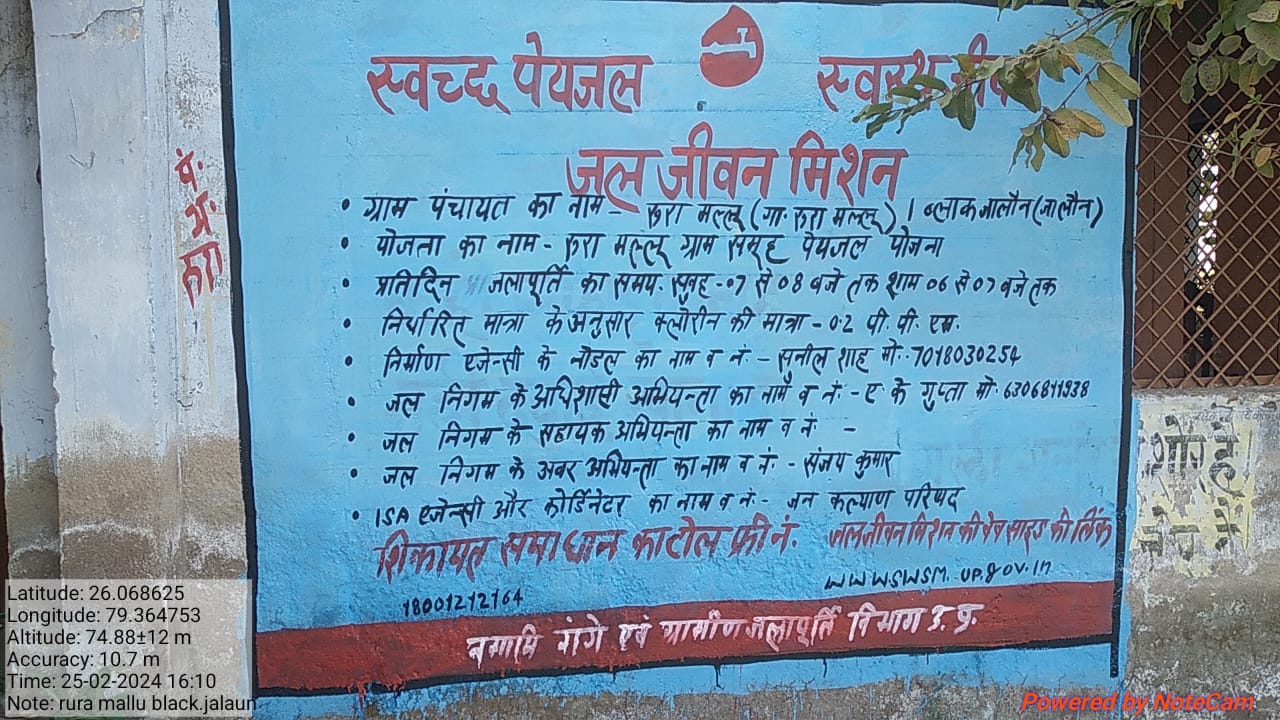 स्वच्छ पेयजल
जल जीवन मिशन
• ग्राम पंचायत का नाम - रूरा मल्लू (गा. रूरा मल्लू) । ब्लाक जालौन (जालौन)
• योजना का नाम - रूरा मल्लू ग्राम समूह पेयजल योजना
• प्रतिदिन जलापूर्ति का समय- सुवह -०7 से ०8 बजे तक शाम ०6 से ०7 बजे तक
• निर्धारित मात्रा के अनुसार क्लोरीन की मात्रा - ०.2 पी. पी. एम.
• निर्माण एजेन्सी के नोडल का नाम व नं - सुनील शाह मो. 7018030254
• जल निगम के अधिशासी अभियन्ता का नाम व नं: - ए के गुप्ता मो. 6306811938
• जल निगम के सहायक अभियन्ता का नाम व नं -
• जल निगम के अवर अभियन्ता का नाम व नं: - संजय कुमार
• ISA एजेन्सी और कोर्डिनेटर का नाम व नं:- जन कल्याण परिषद
शिकायत समाधान का टोल फ्री नं. जल जीवन मिशन की वेव साइड की लिंक
18001212164 www.swsm.up.gov.in
नमामि गंगे एवं ग्रामीण जलापूर्ति विभाग उ. प्र.
पं.
ग्र.
रूरा
Latitude: 26.068625
Longitude: 79.364753
Altitude: 74.88±12 m
Accuracy: 10.7 m
Time: 25-02-2024 16:10
Note: rura mallu black.jalaun
Powered by NoteCam